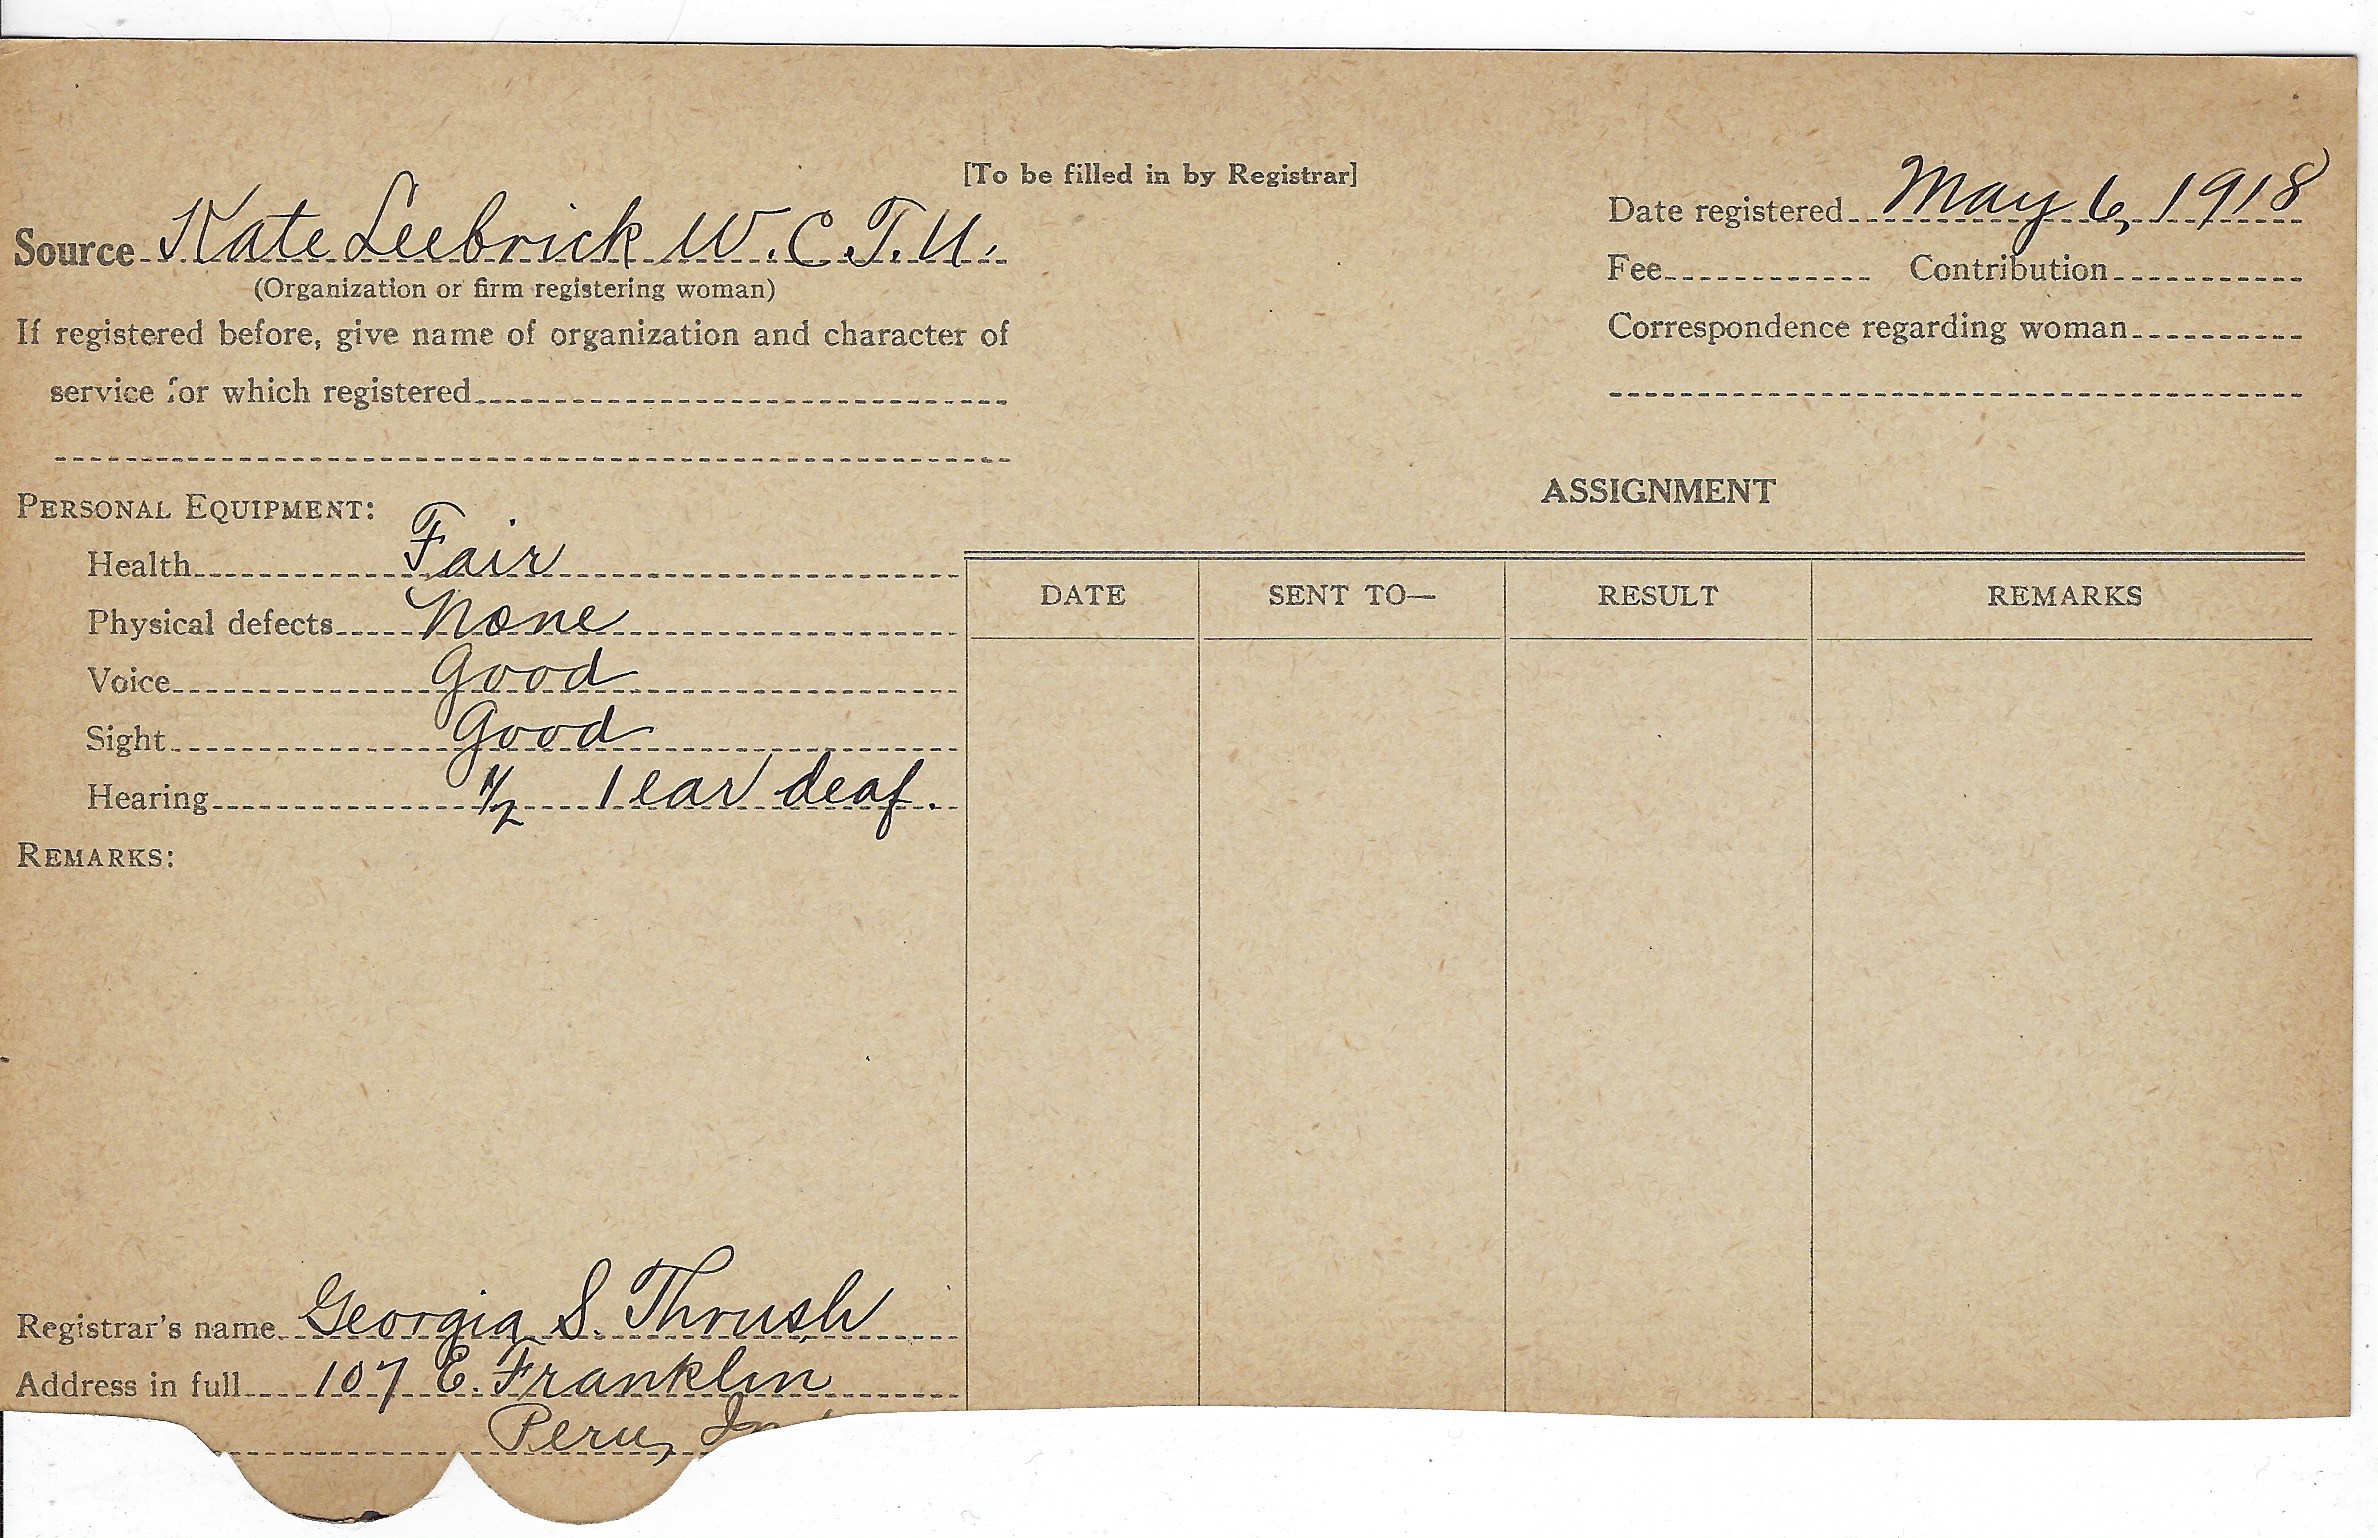 [To be filled in by Registrar]
Source Kate Leebrick W.C.T.U.
(Organization or firm registering woman)
If registered before, give name of organization and character of
service for which registered
Date registered May 6, 1918
Fee Contribution
Correspondence regarding woman
PERSONAL EQUIPMENT:
Health Fair
Physical defects None
Voice Good
Sight Good
Hearing 1/2 1 ear deaf.
REMARKS:
ASSIGNMENT
DATE SENT TO— RESULT REMARKS
Registrar's name Georgia S. Thrush
Address in full 107 E. Franklin
Peru,